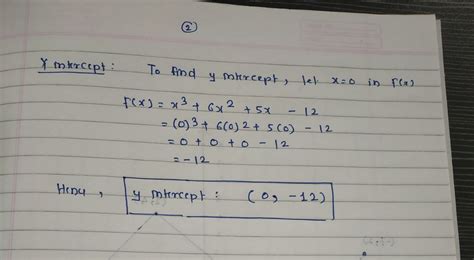 ②
Y intercept : To find y intercept, let x=0 in f(x)
f(x) = x³ + 6x² + 5x - 12
= (0)³ + 6(0)² + 5(0) - 12
= 0 + 0 + 0 - 12
= -12
Hence, y intercept : (0, -12)